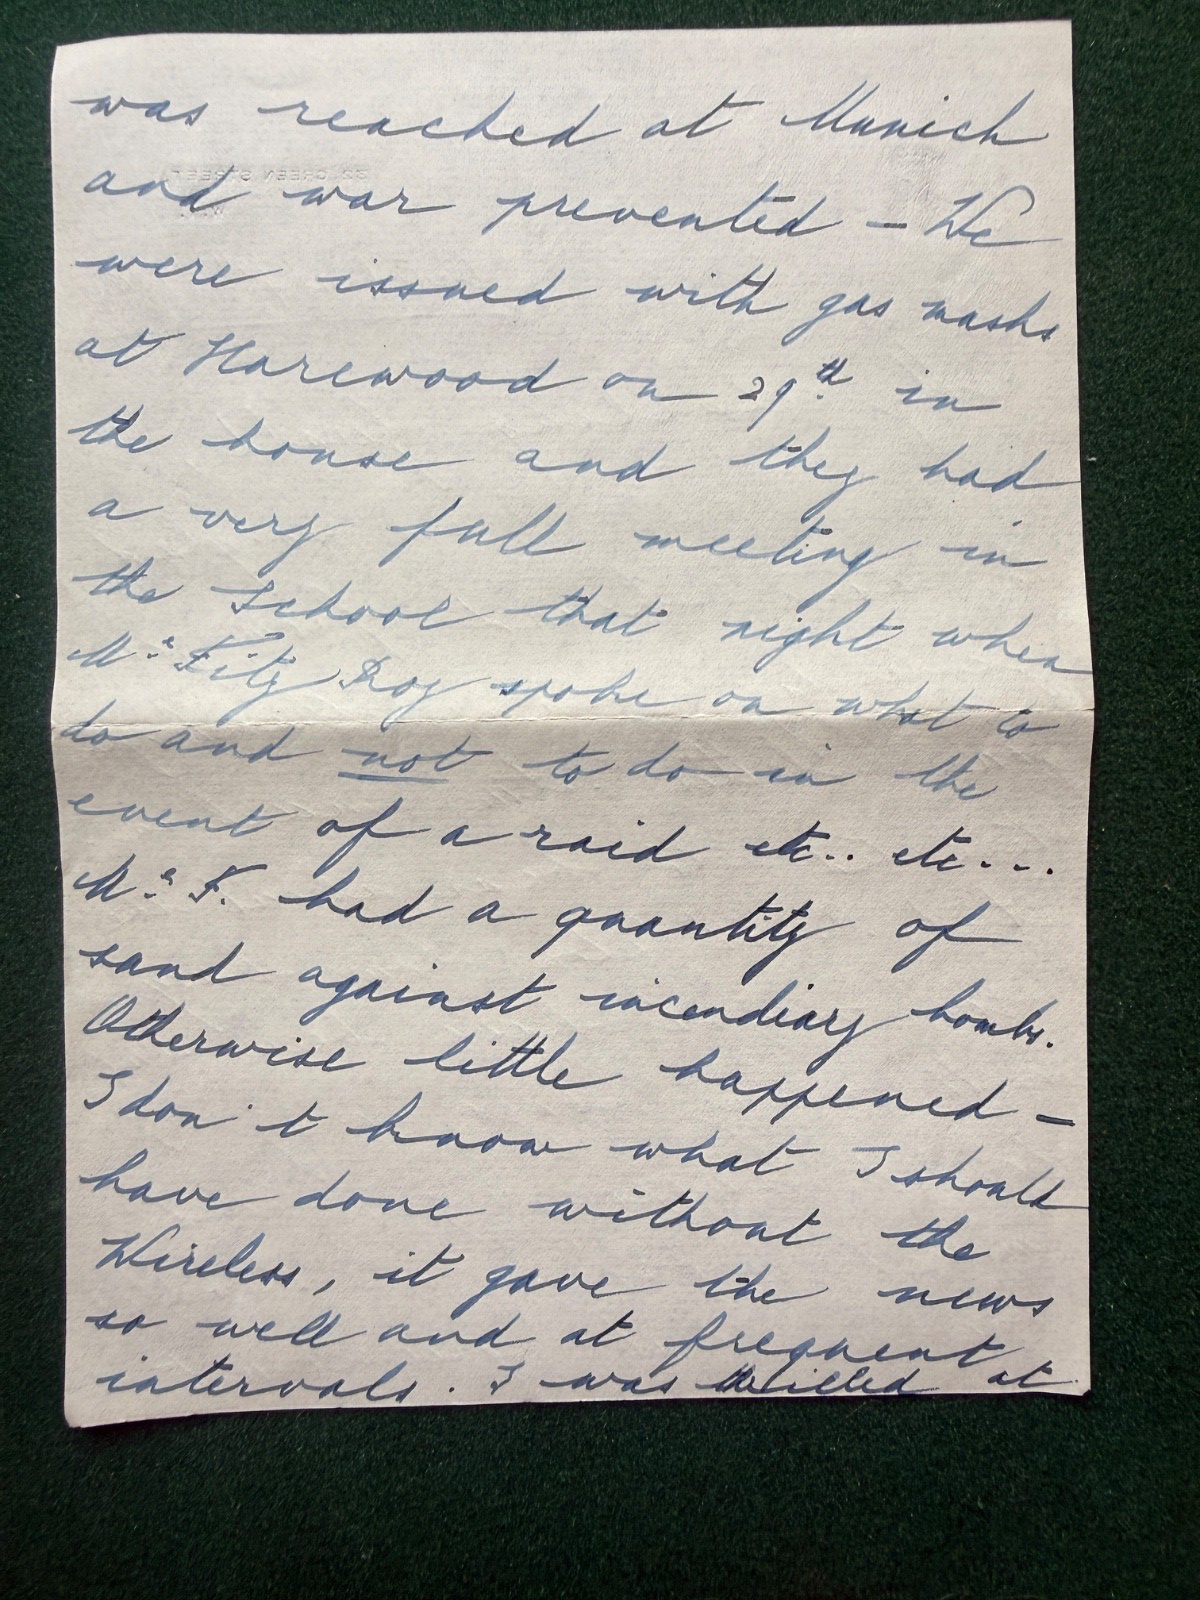 was reached at Munich
and war prevented – We
were issued with gas masks
at Harewood on 29th in
the house and they had
a very full meeting in
the School that night when
Mrs Fitz Roy spoke on what to
do and not to do in the
event of a raid etc.. etc...
Mrs F. had a quantity of
sand against incendiary bombs.
Otherwise little happened –
I don't know what I should
have done without the
Wireless, it gave the news
so well and at frequent
intervals. I was thrilled at
32 GREEN STREET